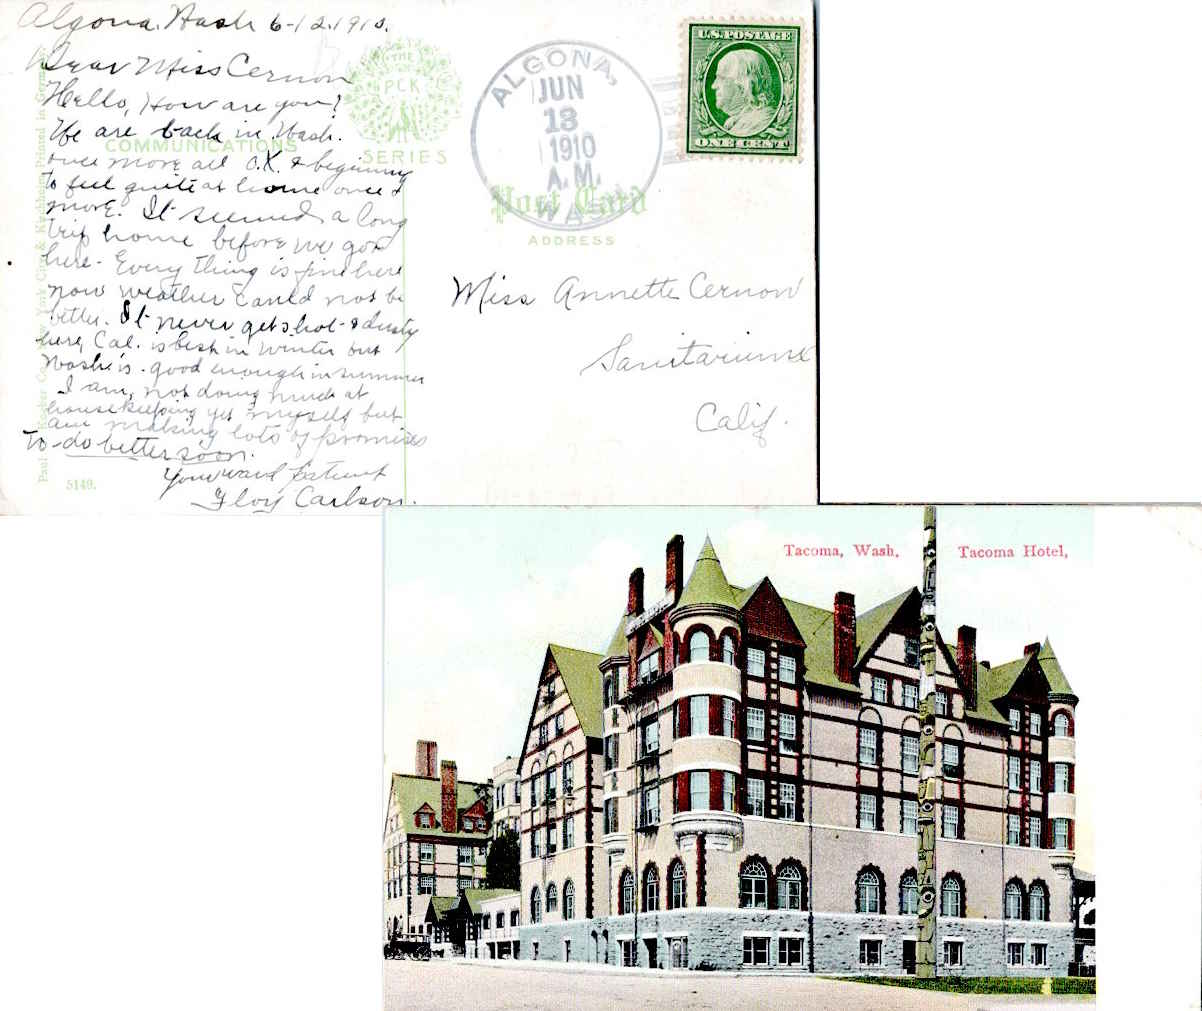 Algona, Wash 6-12.1910.
Dear Miss Cernon
Hello, How are you?
We are back in Wash.
once more all O.K. & beginning
to feel quite at home once
more. It seemed a long
trip home before we got
here. Every thing is fine here
now weather could not be
better. It never gets hot & dusty
here, Cal. is best in winter but
Wash is good enough in summer
I am not doing much at
housekeeping yet myself but
am making lots of promises
to do better soon.
Your ward Patient
Floy Carlson.
COMMUNICATIONS
THE
PCK
SERIES
Paul C. Koeber Co., New York City & Kirchheim, Printed in Germany
5149.
ALGONA,
JUN
13
1910
A.M.
WASH
U.S. POSTAGE
ONE CENT
Post Card
ADDRESS
Miss Annette Cernon
Sanitarium
Calif.
Tacoma, Wash. Tacoma Hotel,